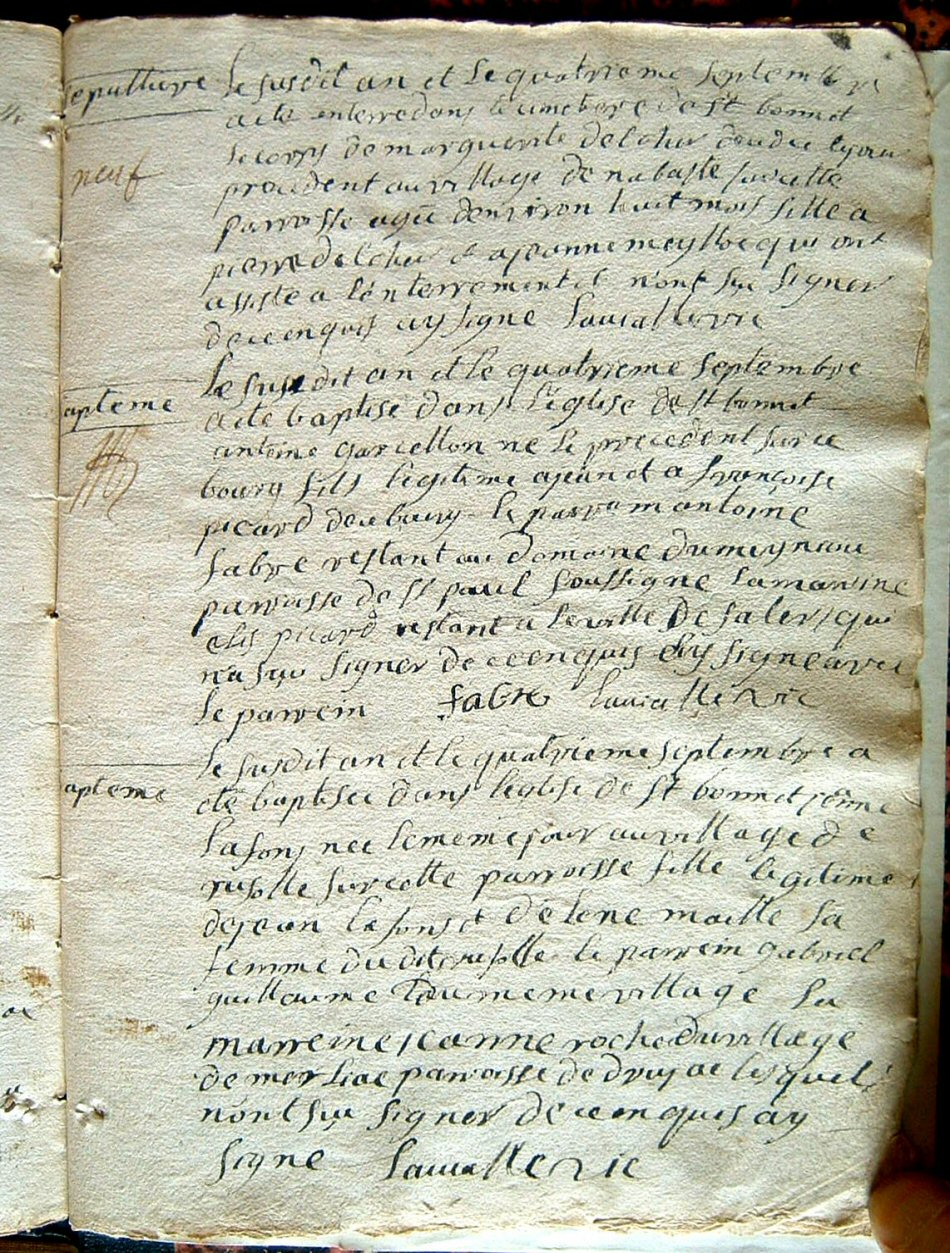 sepulture
le susdit an et le quatrieme septembre
a ete enterre dans le cimetiere de st bonnet
le corps de marguerite delchier
precedent au village de nabaste sur cette
parroisse agée denviron huit mois fille a
pierre delchier et a jeanne qui ont
assiste a lenterrement et nont sçu signer
de ce enquis ay signe Lavialleverie
neuf
apteme
le susdit an et le quatrieme septembre
a ete baptisé dans leglise de st bonnet
antoine garcellon ne le precedent sur ce
bourg fils legitime a jean et a françoise
picard de ce bourg le parrein antoine
fabre restant au domaine
parroisse de st paul soussigne la marine
elis picard restant a la ville de salers qui
na sçu signer de ce enquis ay signe avec
le parrein fabre Lavialleverie
apteme
le susdit an et le quatrieme septembre a
ete baptisee dans leglise de st bonnet jeanne
lafons nee le meme jour au village de
rusolle sur cette parroisse fille legitime
de jean lafons et delene maille sa
femme du dit rusolle le parrein gabriel
guillaume du meme village la
marreine jeanne roche du village
de merliac parroisse de drujac lesquels
nont sçu signer de ce enquis ay
signe Lavialleverie